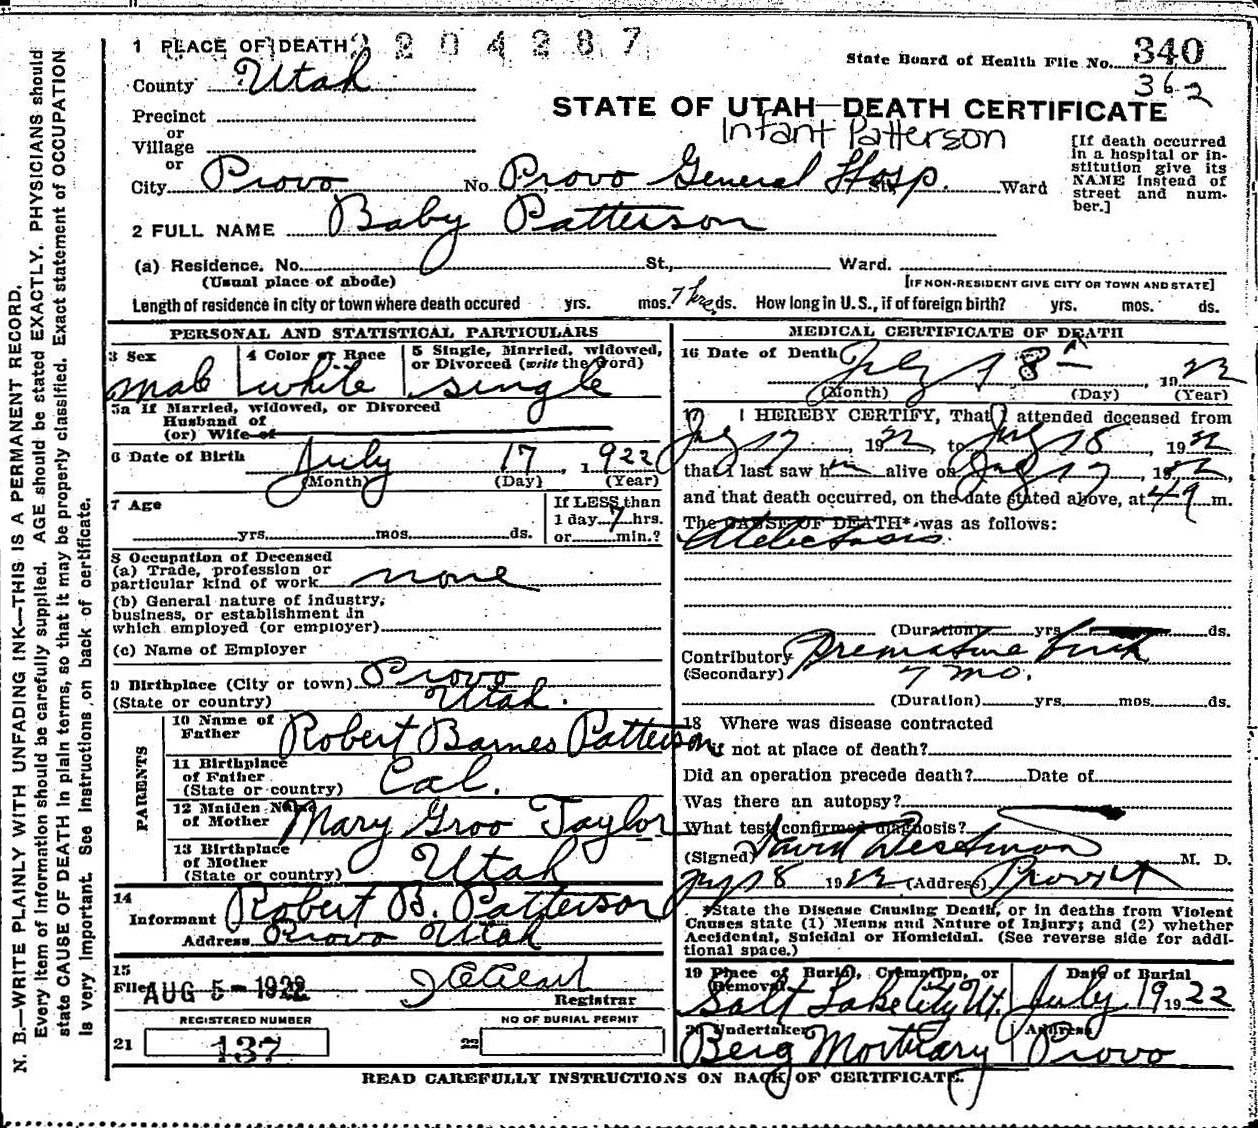 1 PLACE OF DEATH 2204287
State Board of Health File No. 340
County Utah
362
STATE OF UTAH—DEATH CERTIFICATE
Precinct
or
Village
or
Infant Patterson
[If death occurred
in a hospital or in-
stitution give its
NAME instead of
street and num-
ber.]
City Provo No. Provo General Hosp. St. Ward
2 FULL NAME Baby Patterson
(a) Residence. No. St., Ward.
(Usual place of abode) [IF NON-RESIDENT GIVE CITY OR TOWN AND STATE]
Length of residence in city or town where death occured yrs. mos. 7 hrs ds. How long in U.S., if of foreign birth? yrs. mos. ds.
PERSONAL AND STATISTICAL PARTICULARS
3 Sex
male
4 Color or Race
white
5 Single, Married, widowed,
or Divorced (write the word)
single
5a If Married, widowed, or Divorced
Husband of
(or) Wife of
6 Date of Birth July 17, 1922
(Month) (Day) (Year)
7 Age
yrs. mos. ds.
If LESS than
1 day 7 hrs.
or min.?
8 Occupation of Deceased
(a) Trade, profession or
particular kind of work none
(b) General nature of industry,
business, or establishment in
which employed (or employer)
(c) Name of Employer
9 Birthplace (City or town) Provo
(State or country) Utah.
PARENTS
10 Name of
Father Robert Barnes Patterson
11 Birthplace
of Father
(State or country) Cal.
12 Maiden Name
of Mother Mary Groo Taylor
13 Birthplace
of Mother
(State or country) Utah
14
Informant Robert B. Patterson
Address Provo Utah
15
Filed AUG 5 - 1922
Registrar
REGISTERED NUMBER
21 137
NO OF BURIAL PERMIT
22
MEDICAL CERTIFICATE OF DEATH
16 Date of Death July 18, 1922
(Month) (Day) (Year)
17 I HEREBY CERTIFY, That I attended deceased from
July 17, 1922 to July 18, 1922
that I last saw him alive on July 17, 1922,
and that death occurred, on the date stated above, at m.
The CAUSE OF DEATH* was as follows:
Atelectasis
(Duration) yrs. ds.
Contributory Premature birth
(Secondary) 7 mo.
(Duration) yrs. mos. ds.
18 Where was disease contracted
if not at place of death?
Did an operation precede death? Date of
Was there an autopsy?
What test confirmed diagnosis?
(Signed) David Westwood M. D.
July 18 1922 (Address) Provo Ut
*State the Disease Causing Death, or in deaths from Violent
Causes state (1) Means and Nature of Injury; and (2) whether
Accidental, Suicidal or Homicidal. (See reverse side for addi-
tional space.)
19 Place of Burial, Cremation, or
Removal
Salt Lake City Ut.
Date of Burial
July 19 1922
20 Undertaker
Berg Mortuary
Address
Provo
READ CAREFULLY INSTRUCTIONS ON BACK OF CERTIFICATE.
N. B.—WRITE PLAINLY WITH UNFADING INK—THIS IS A PERMANENT RECORD.
Every item of information should be carefully supplied. AGE should be stated EXACTLY. PHYSICIANS should
state CAUSE OF DEATH in plain terms, so that it may be properly classified. Exact statement of OCCUPATION
is very important. See instructions on back of certificate.